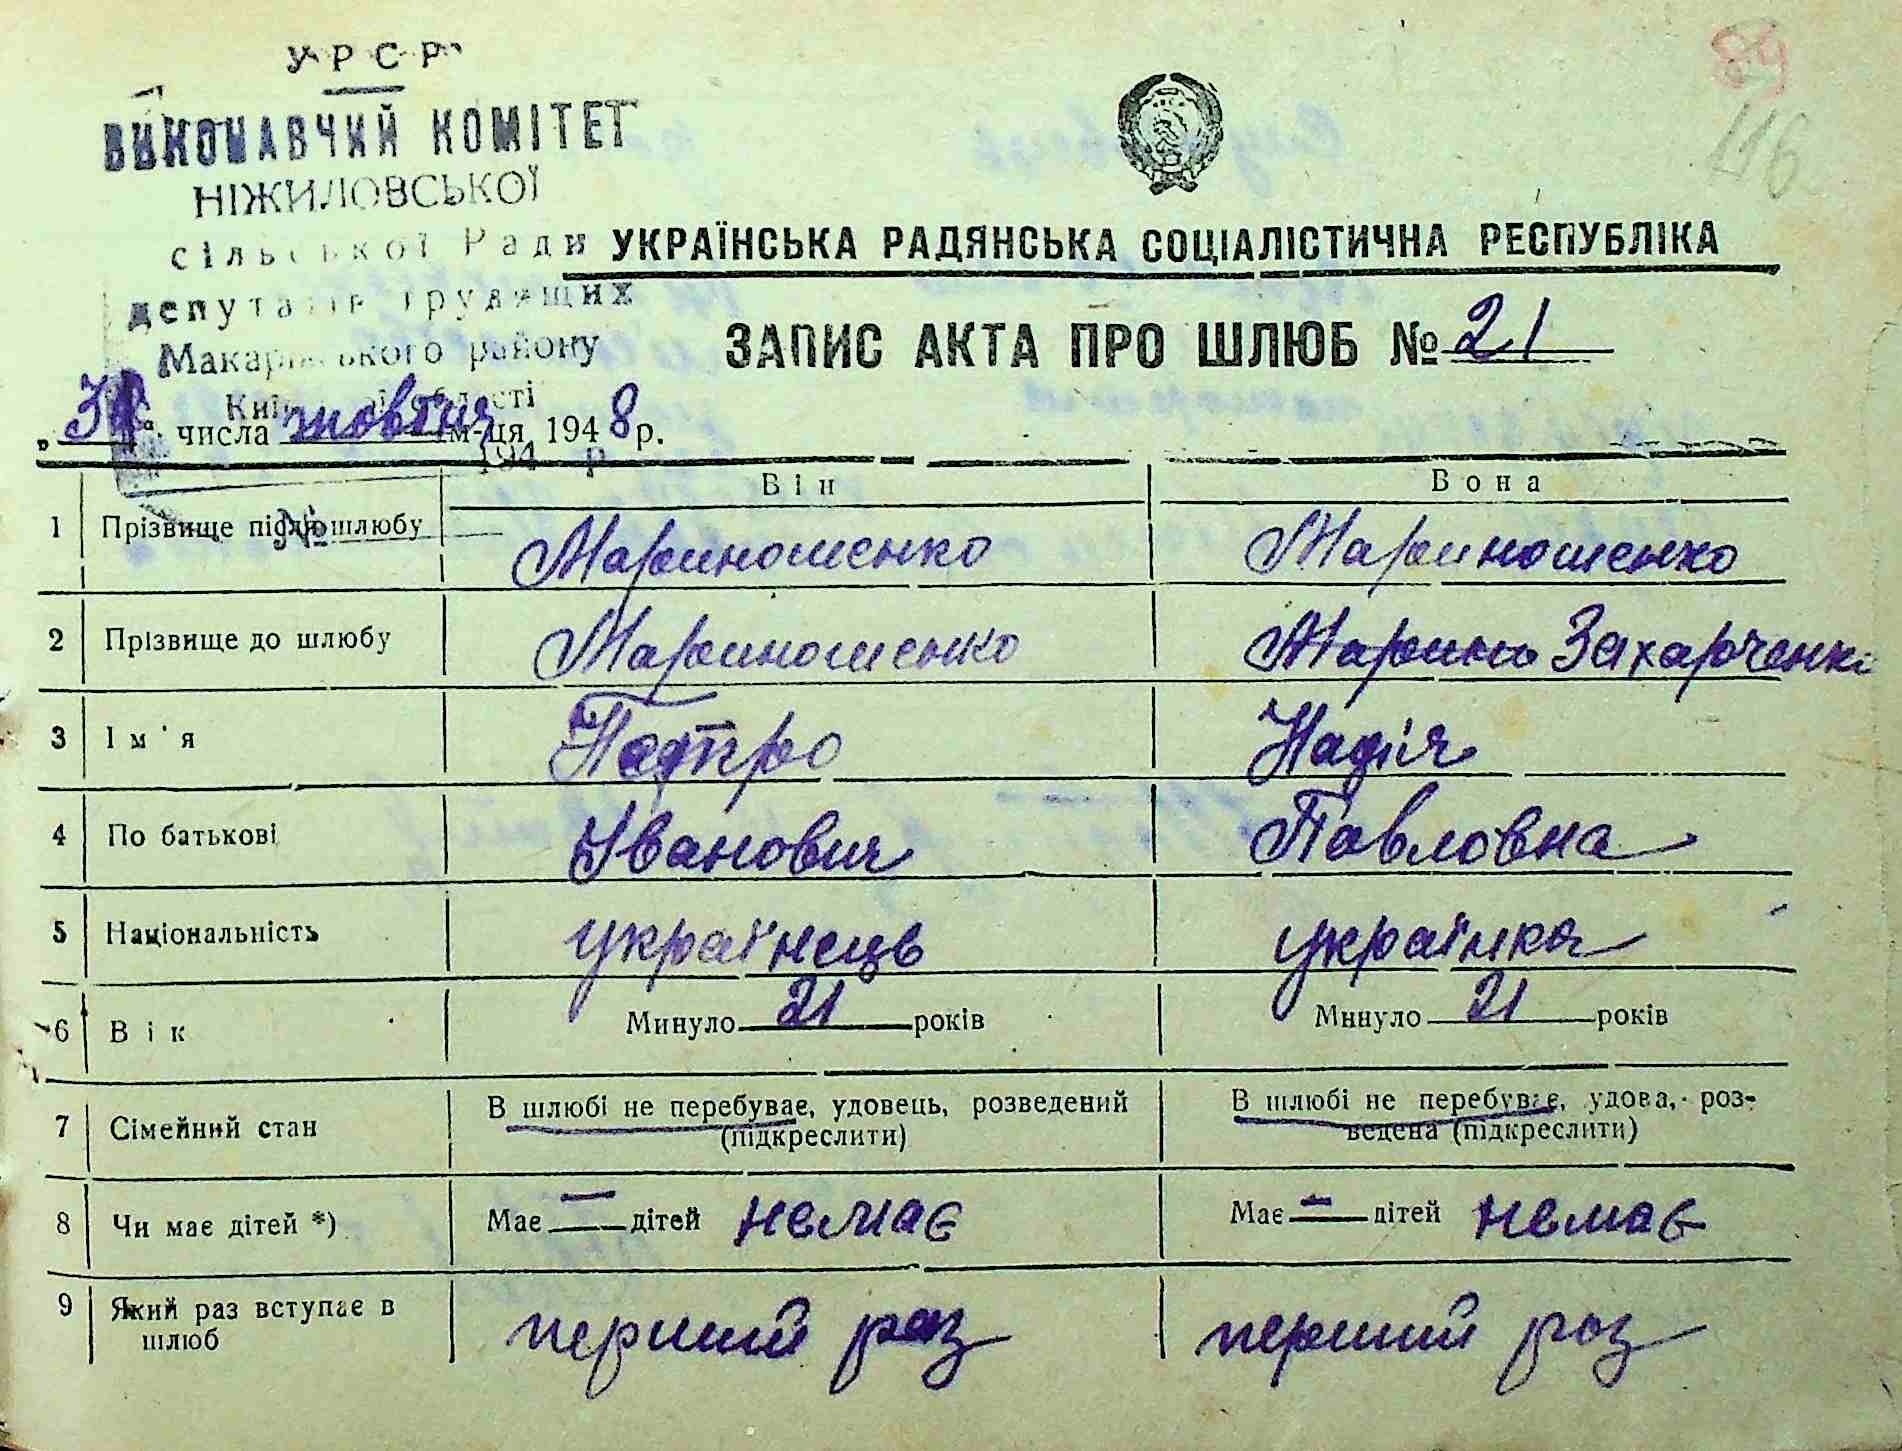 У Р С Р
89
116
ВИКОНАВЧИЙ КОМІТЕТ
НІЖИЛОВСЬКОЇ
сільської Ради
депутатів трудящих
Макарівського району
Київської області
194 р
№
УКРАЇНСЬКА РАДЯНСЬКА СОЦІАЛІСТИЧНА РЕСПУБЛІКА
ЗАПИС АКТА ПРО ШЛЮБ № 21
числа жовтня м-ця 1948 р.
Він Вона
1 Прізвище після шлюбу Мариношенко Мариношенко
2 Прізвище до шлюбу Мариношенко Захарченко
3 Ім'я Петро Надія
4 По батькові Іванович Павловна
5 Національність українець українка
6 Вік Минуло 21 років Минуло 21 років
7 Сімейний стан В шлюбі не перебуває, удовець, розведений (підкреслити) В шлюбі не перебуває, удова, розведена (підкреслити)
8 Чи має дітей *) Має — дітей немає Має — дітей немає
9 Який раз вступає в шлюб перший раз перший раз